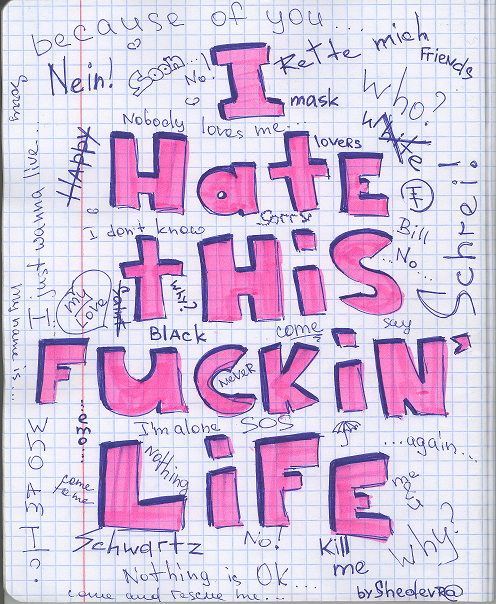 because of you...
Nein!
Soon...!
No!
I
Rette mich
Friends
mask
Who?
Nobody loves me...
HAPPY
HATE
lovers
Sorry
Sorry
I just wanna live...
my name is...
I don't know
Bill
...No...
Schrei!
THiS
why?
my
BLACK
come
say
FUCKiN'
NeveR
...ОЗО...
I'm alone
SOS
...again...
LiFE
Nothing
come to me
Schwartz
No!
Kill me
why?
Nothing is OK...
come and rescue me...
by Shedevra